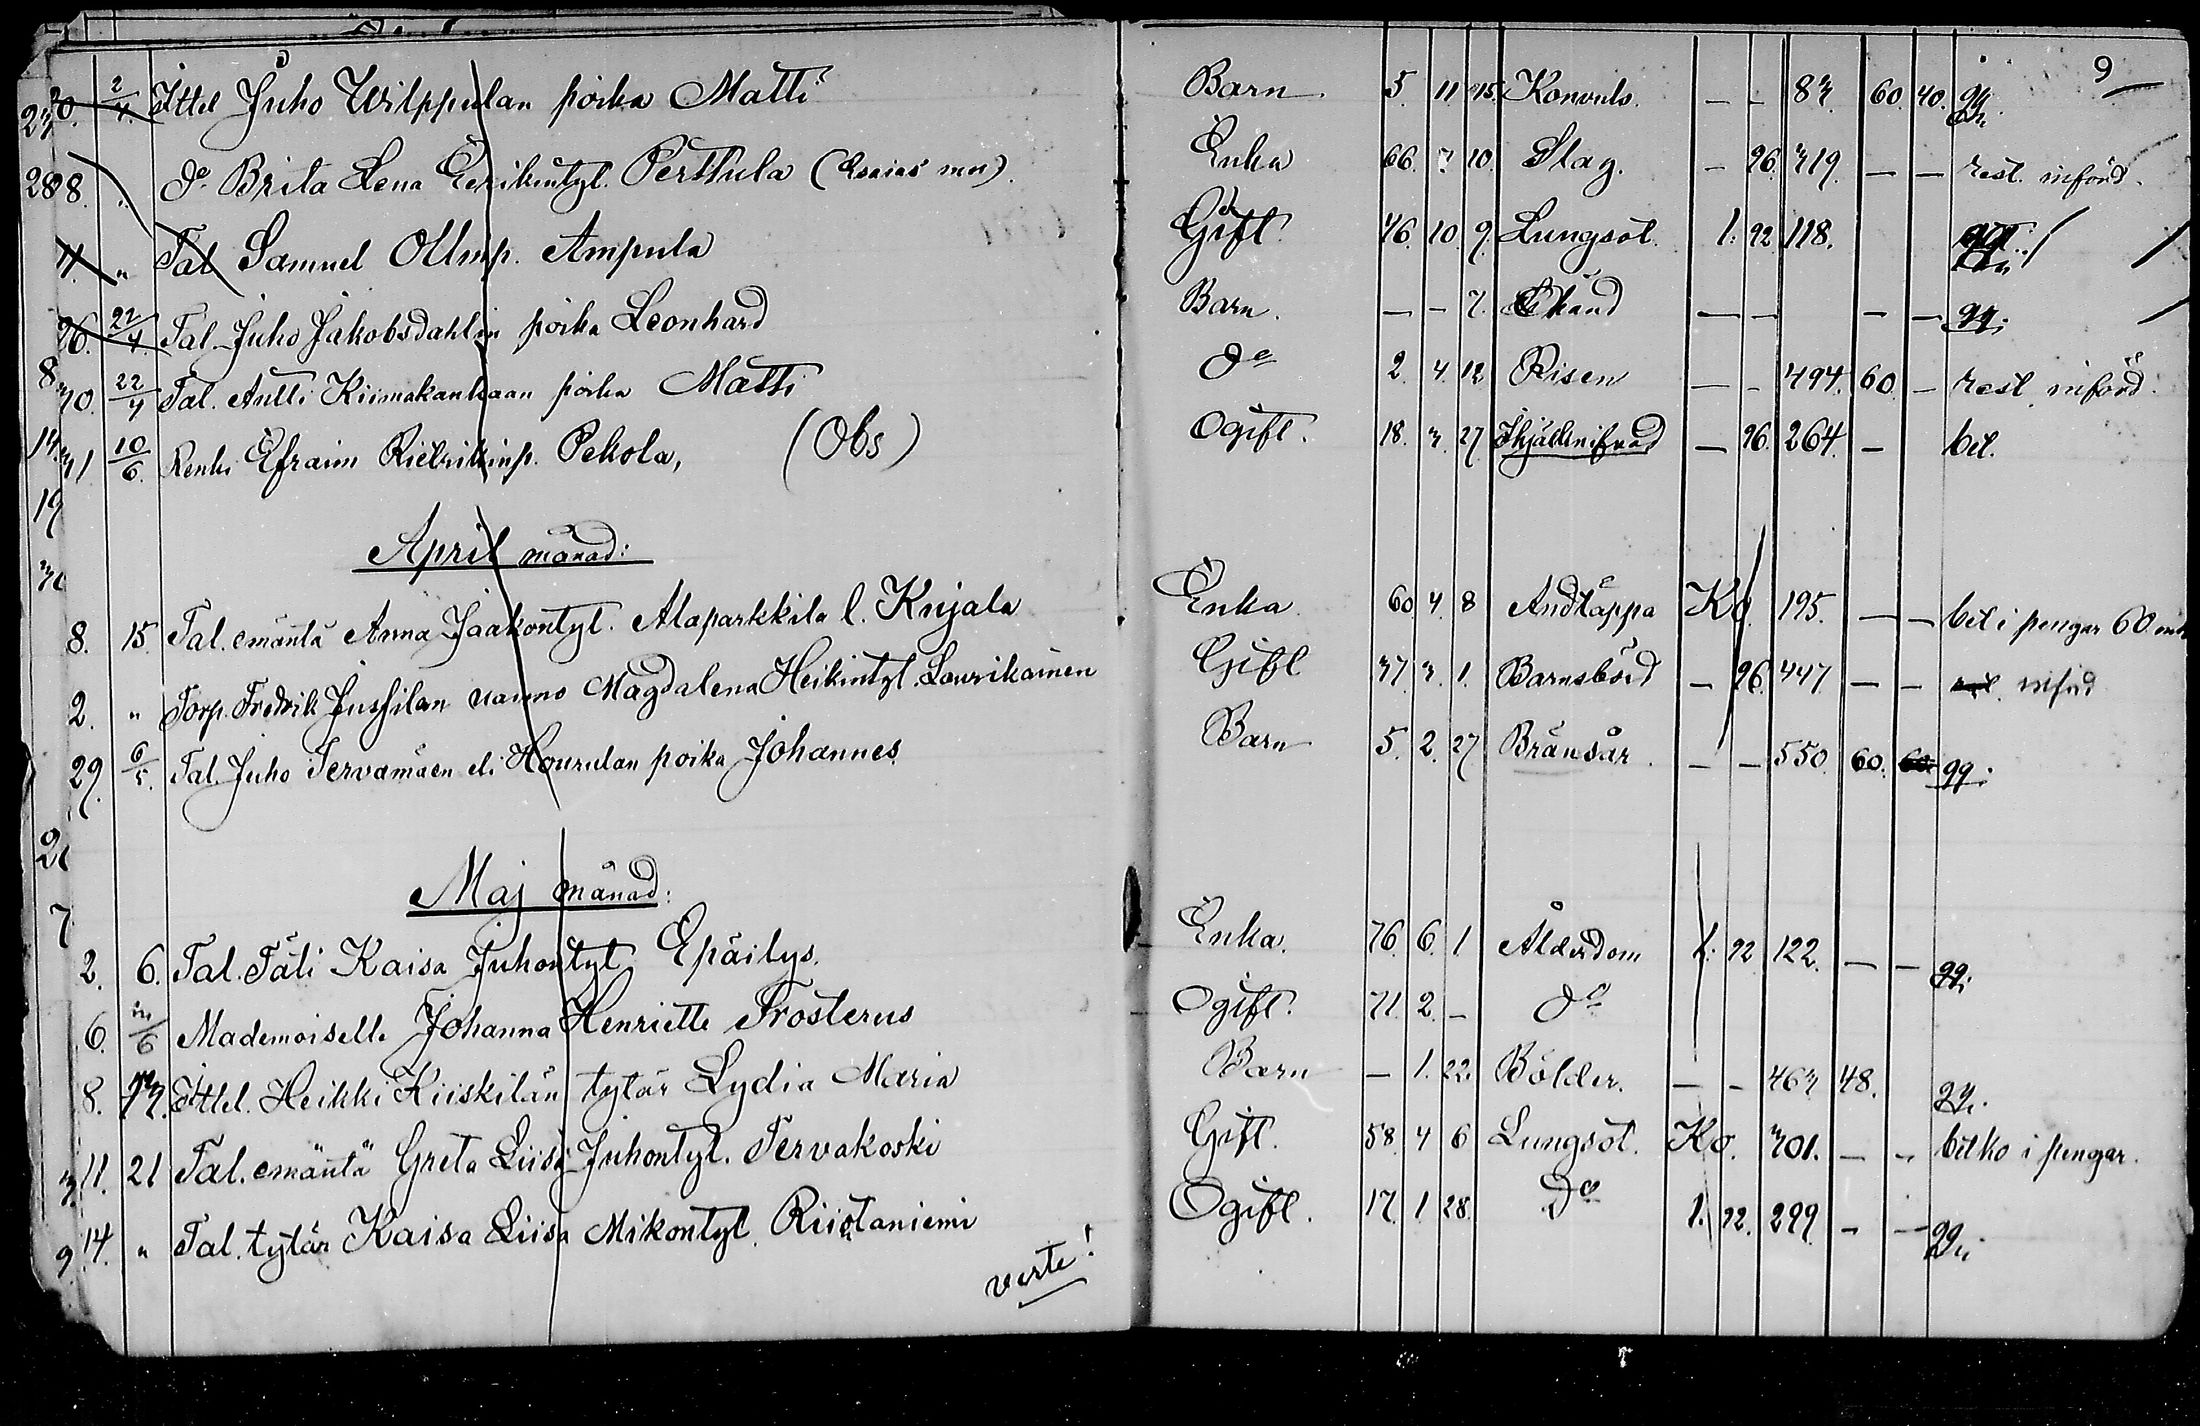 9
20. 2/4. Ittel Juho Wilppulan poika Matti Barn 5. 11 15. Konvuls. — - 83. 60. 40. qq.
28. do Brita Lena Eerikintyl. Perttula (Esaias mu). Enka 66. 7. 10. Slag. - 26. 319. — — rest. införd.
11. " Tal Samuel Ollinp. Ampula Gift 46. 10. 9. Lungsot. 1: 92 118.
26. 22/4. Tal. Juho Jakobsdahlin poika Leonhard Barn. — - 7. Okänd — — — — qq.
30. 22/4 Tal. Antti Kiimakankaan poika Matti do 2. 4. 12 Risen — - 494. 60 - rest införd.
31 10/6. Renki Efraim Rietrikinp. Pekola, (Obs) Ogift. 18. 3. 27. — 26. 264. — bet.
April månad:
8. 15. Tal. emäntä Anna Jaakontyl. Alaparkkila l. Kujala Enka 60 4 8 Andtäppa Ko. 195. — — bet i pengar 60
2. " Torp. Fredrik Jussilan vaimo Magdalena Heikintyl. Lourikainen Gift 37. 3. 1. Barnsbörd - 26. 447. — — införd
29. 6/5. Tal. Juho Tervamäen eli Hourulan poika Johannes. Barn 5. 2. 27 Bränsår. — — 550. 60. qq.
Maj månad:
2. 6. Tal. Täti Kaisa Juhontyt. Epäilys. Enka. 76. 6. 1 Ålderdom 1: 92 122. — — qq.
6. Mademoiselle Johanna Henriette Frosterus Ogift. 71. 2. - do
8. 13. Ittel. Heikki Kiiskilän tytär Lydia Maria Barn — 1. 22. Bölder. — - 463 48. qq.
11. 21 Tal. emäntä Greta Liisa Juhontyt. Tervakoski Gift. 58. 4 6 Lungsot. Ko. 301. — - bet ko i pengar.
14. " Tal. tytär Kaisa Liisa Mikontyt. Riistaniemi Ogift. 17. 1. 28. do 1. 92. 299. - - qq.
verte!